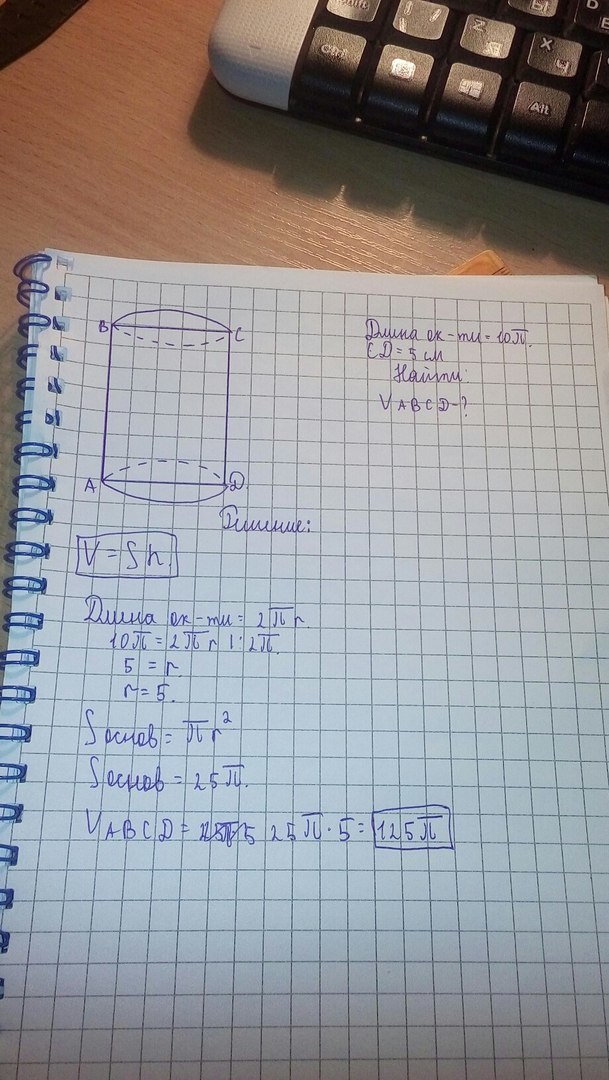 Ctrl
Z
X
Ч
Alt
B
C
A
D
Длина ок-ти = 10π.
CD = 5 см
Найти:
V ABCD - ?
Решение:
V = S h
Длина ок-ти = 2πr.
10π = 2πr | : 2π.
5 = r.
r = 5.
S основ = πr²
S основ = 25π.
V ABCD = 25π · 5 = 125π